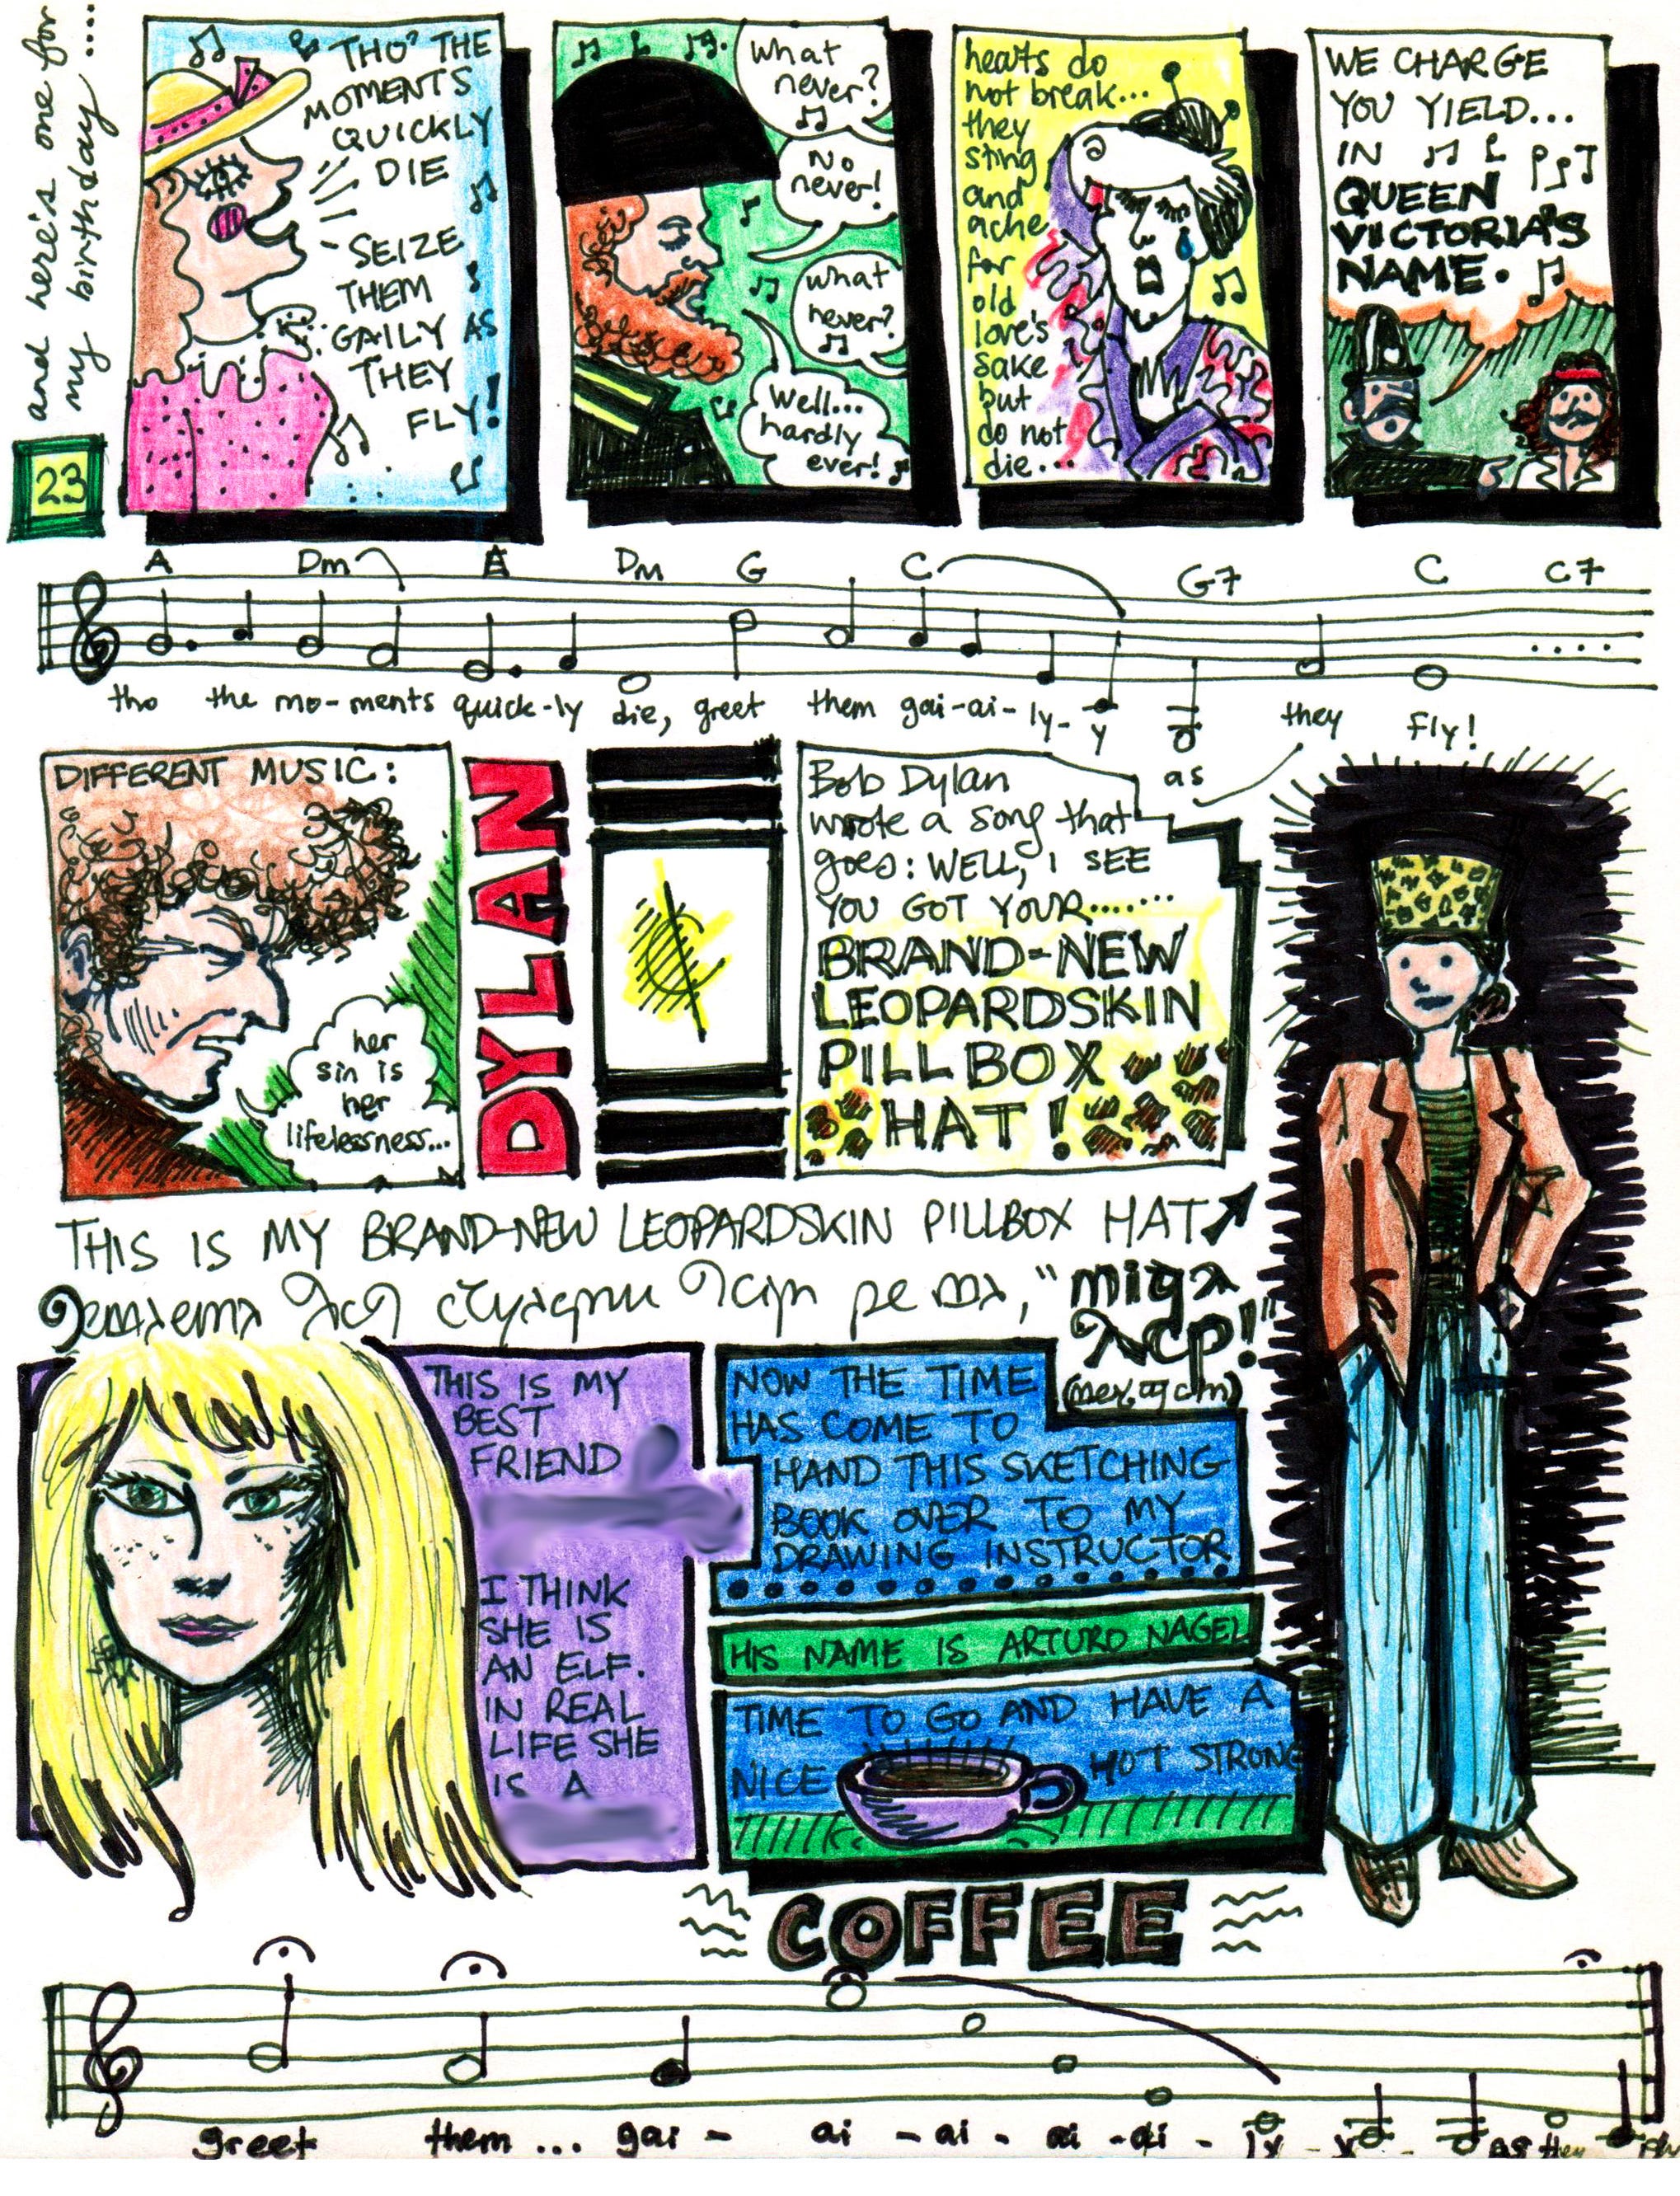 and here's one for
my birthday ....
23
THO' THE
MOMENTS
QUICKLY
DIE
SEIZE
THEM
GAILY AS
THEY
FLY!
what
never?
No
never!
what
never?
Well...
hardly
ever!
hearts do
not break...
they
sting
and
ache
for
old
love's
sake
but
do not
die...
WE CHARGE
YOU YIELD...
IN
QUEEN
VICTORIA'S
NAME.
A Dm A Dm G C G7 C C7
tho the mo-ments quick-ly die, greet them gai-ai-ly-y as they fly!
DIFFERENT MUSIC:
her
sin is
her
lifelessness...
DYLAN
Bob Dylan
wrote a song that
goes: WELL, I SEE
YOU GOT YOUR.......
BRAND-NEW
LEOPARDSKIN
PILLBOX
HAT!
THIS IS MY BRAND-NEW LEOPARDSKIN PILLBOX HAT
THIS IS MY
BEST
FRIEND
I THINK
SHE IS
AN ELF.
IN REAL
LIFE SHE
IS A
NOW THE TIME
HAS COME TO
HAND THIS SKETCHING
BOOK OVER TO MY
DRAWING INSTRUCTOR
HIS NAME IS ARTURO NAGEL
TIME TO GO AND HAVE A
NICE HOT STRONG
COFFEE
greet them... gai - ai - ai - ai - ai - ly - y - as they